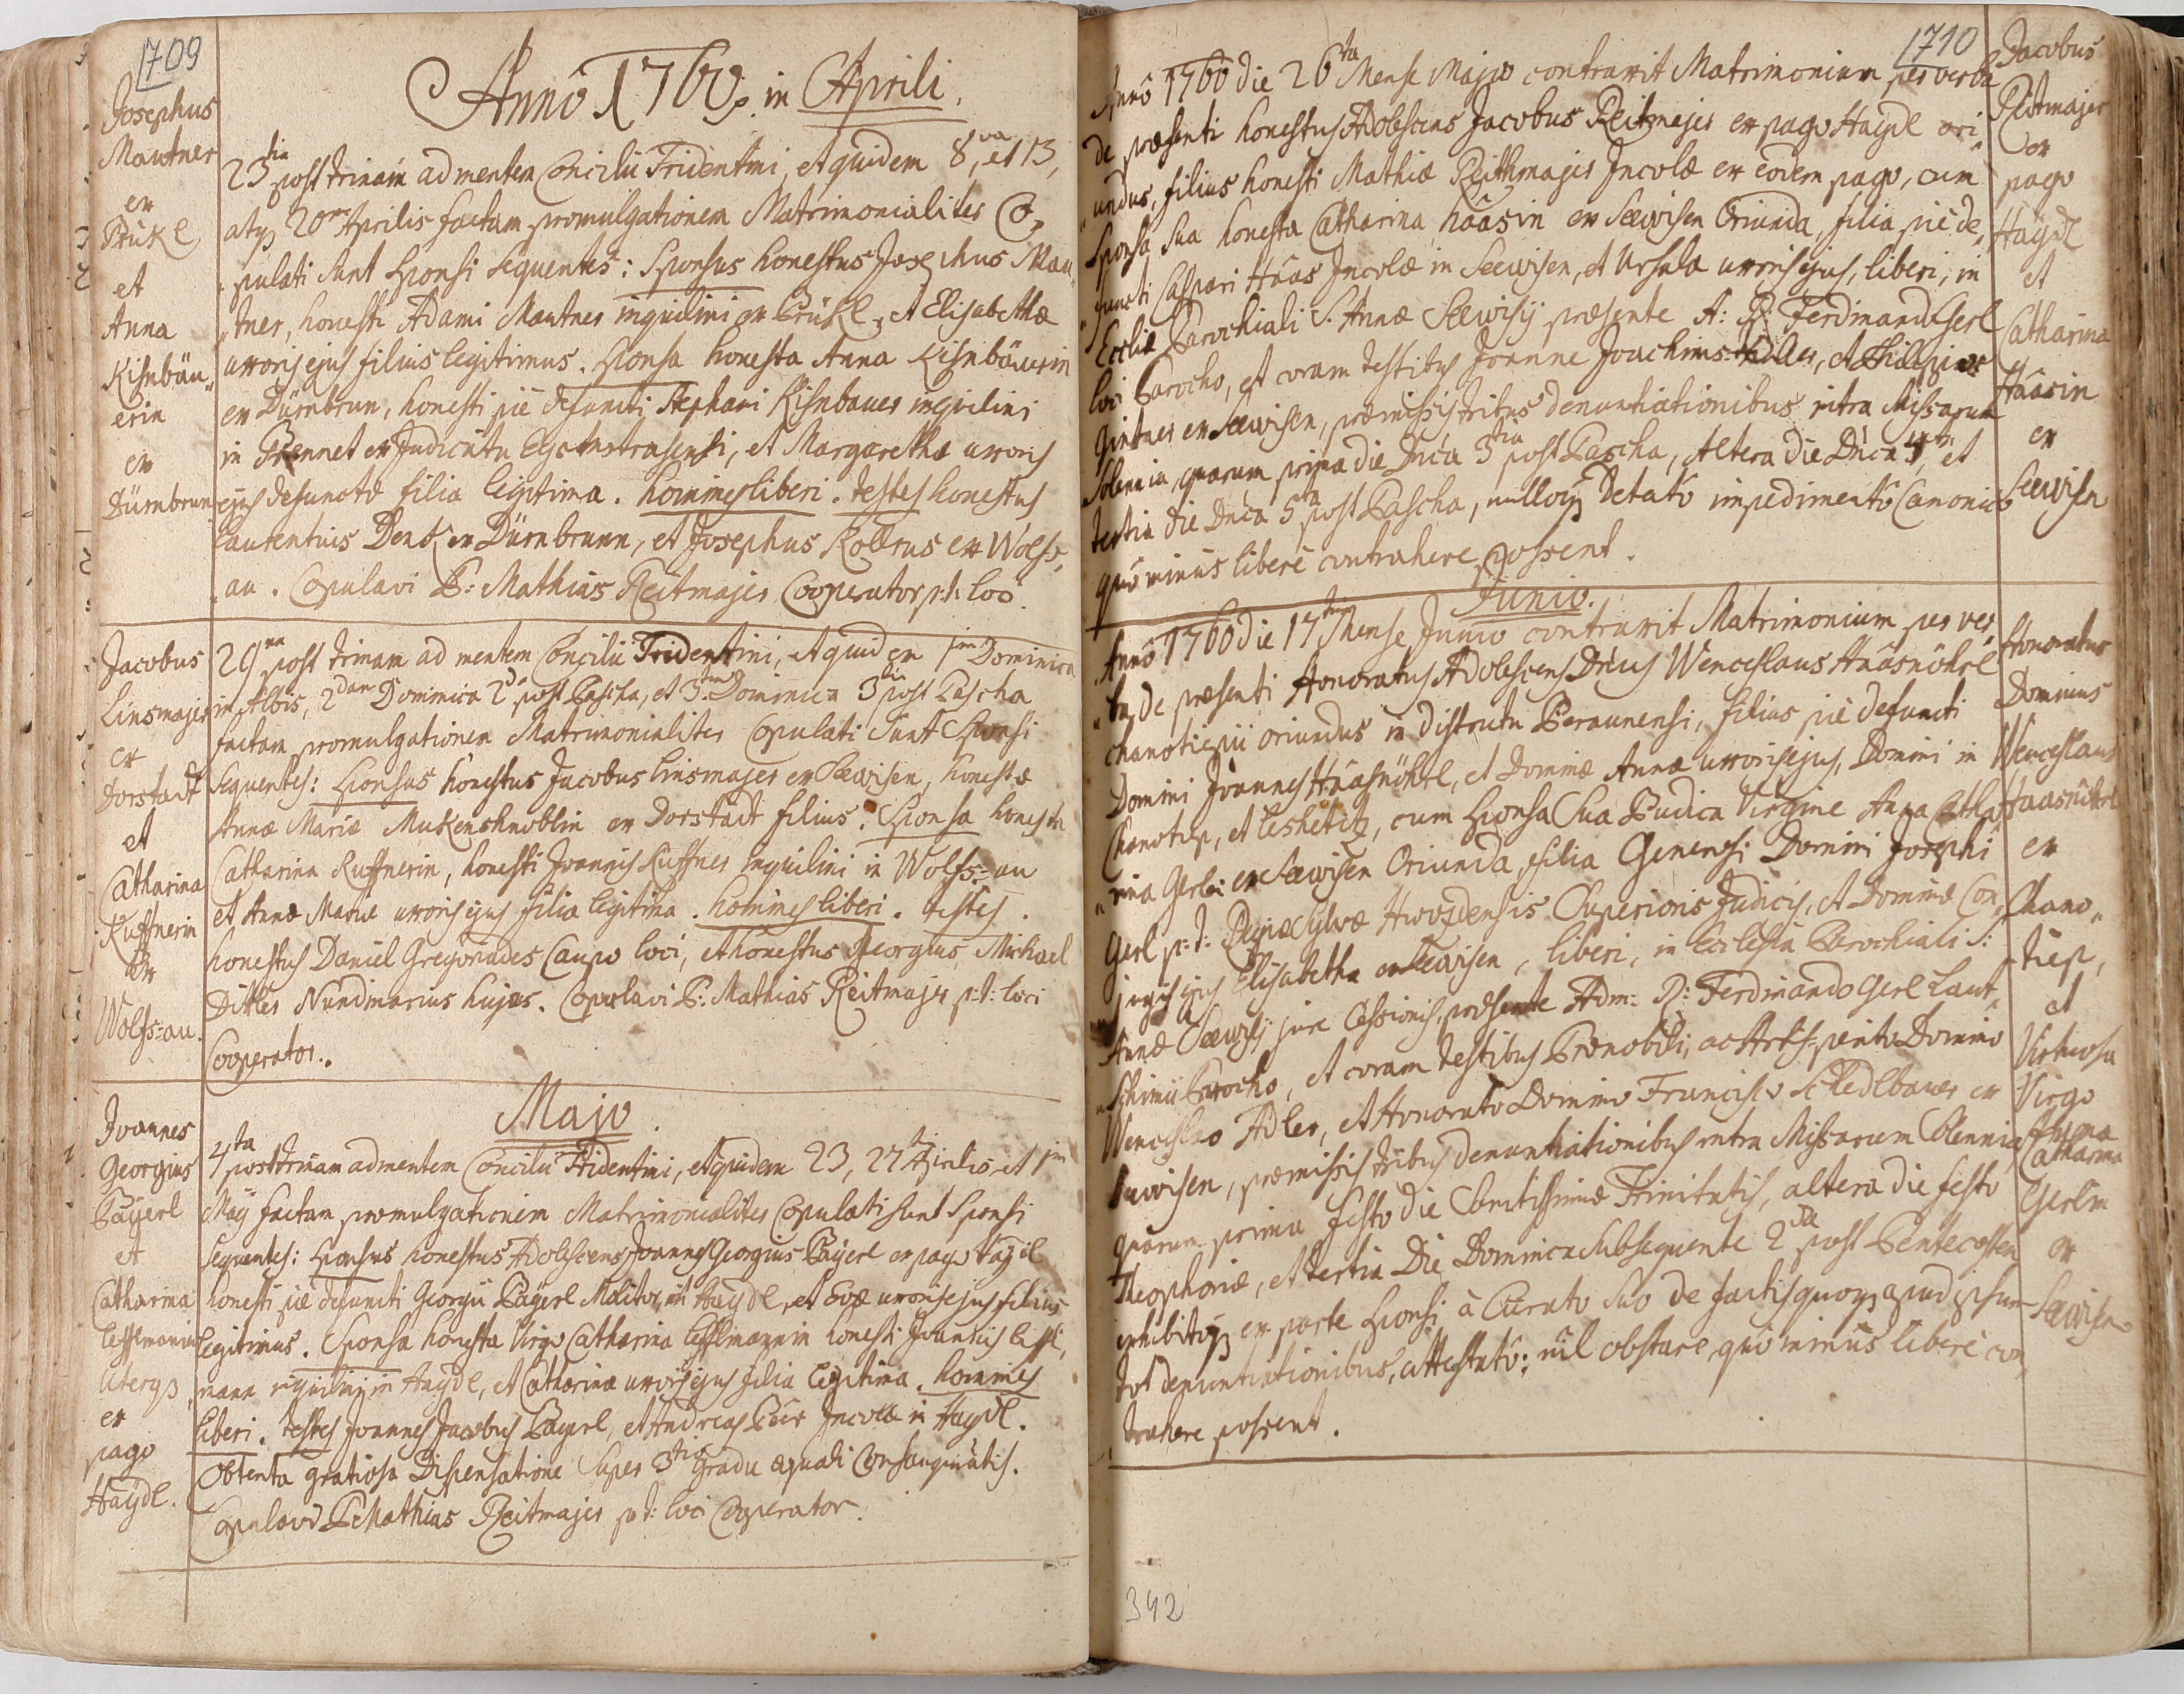 1709
Josephus
Mautner
ex
Prükl
et
Anna
Kisnbäu„
erin
ex
Dürnbrun
Anno 1760. in Aprili.
23tia post trinam ad mentem Concilii Tridentini, et quidem 8va, et 13,
atq3 20ma Aprilis factam promulgationem Matrimonialiter Co„
„pulati sunt Sponsi sequentes: Sponsus honestus Josephus Mau„
„tner, honesti Adami Mautner inquilini ex Prükl, et Elisabethæ
uxoris ejus filius legitimus. Sponsa honesta Anna Kisnbäuerin
ex Dürnbrun, honesti piè defuncti Stephani Kisnbauer inquilini
in Prennet ex Judicatu, et Margarethæ uxoris
ejus defunctæ filia legitima. homines liberi. testes honestus
Laurentius Denk ex Dürnbrunn, et Josephus Kollrus ex Wolfs„
„au. Copulavi P: Mathias Reitmajer Cooperator p:t: loci.
Jacobus
Linsmajer
ex
Dorstadt
et
Catharina
Kuffnerin
ex
Wolfs=au.
29na post trinam ad mentem Concilii Tridentini, et quidem 1ma Dominica
in Albis, 2dam Dominica 2da post Pascha, et 3am Dominica 3tia post Pascha
factam promulgationem Matrimonialiter Copulati sunt Sponsi
sequentes: Sponsus honestus Jacobus Linsmajer ex Seewisen, honestæ
Annæ Mariæ Mukenschnöblin ex Dorstadt filius. Sponsa honesta
Catharina Kuffnerin, honesti Joannis Kuffner inquilini in Wolfs=au
et Annæ Mariæ uxoris ejus filia legitima. homines liberi. testes.
honestus Daniel Gregoriades Caupo loci, et honestus Georgius Michael
Ditler Nundinarius hujas. Copulavi P: Mathias Reitmajer p:t: loci
Cooperator.
Majo.
Joannes
Georgius
Päyerl
et
Catharina
Lefflmanin
uterq3
ex
pago
Haÿdl.
4ta post trinam ad mentem Concilii Tridentini, et quidem 23, 27 Aprilis, et 1ma
Maÿ factam promulgationem Matrimonialiter Copulati sunt Sponsi
sequentes: Sponsus honestus Adolescens Joannes Georgius Päyerl ex pago Haÿdl
honesti piè defuncti Georgii Päyerl Molitor in Haÿdl, et Evæ uxoris ejus filius
legitimus. Sponsa honesta Virgo Catharina Lefflmannin honesti Joannis Leffl„
„mann inquilini in Haÿdl, et Catharinæ uxoris ejus filia legitima. homines
liberi. testes Joannes Jacobus Päyerl, et Andreas Pär Incolæ in Haÿdl.
Obtenta gratiosa Dispensatione super 3tio gradu æquali Consanguinitatis.
Copulavi P Mathias Reitmajer p:t: loci Cooperator.
1710
Anno 1760 die 26ta Mense Majo contraxit Matrimonium per verba
de præsenti honestus Adolescens Jacobus Reitmajer ex pago Haÿdl ori„
„undus, filius honesti Mathiæ Reithmajer Incolæ ex eodem pago, cum
Sponsa sua honesta Catharina Häasin ex Seewisen Oriunda, filia piè de„
„functi Caspari Häas Incolæ in Seewisen, et Ursulæ uxoris ejus, liberi, in
Ecclia Parochiali S. Annæ Seewisÿ præsente A: R: Ferdinando Gerl
loci Parocho, et coram testibus Joanne Joachim, et
ex Seewisen, præmissis tribus denuntiationibus intra Missarum
Solennia, quarum prima die Dnica 3tia post Pascha, altera die Dnica 4ta, et
tertia die Dnica 5ta post Pascha, nulloq3 Detecto impedimento Canonico
quo minus liberè contrahere possent.
Jacobus
Reitmajer
ex
pago
Haÿdl
et
Catharina
Häasin
ex
Seewisn
Junio.
Anno 1760 die 17ma Mense Junio contraxit Matrimonium per ver„
„ba de præsenti Honoratus Adolescens Dnus Wenceslaus Haasnöhrl
Chanotiepii oriundus in districtu Beraunensi, filius piè defuncti
Domini Joannes Haasnöhrl, et Dominæ Annæ uxoris ejus, Domini in
Chanotiep, et Leshetitz, cum Sponsa Sua Pudica Virgine Anna Catha„
„rina Gerlin ex Seewisen Oriunda, filia Generosi Domini Josephi
Gerl p:t: Regiæ Sylvæ Hwozdensis Superioris Judicis, et Dominæ Con„
jugis ejus Elisabetha ex Seewisen, liberi, in Ecclesia Parochiali S:
Annæ Seewisÿ jure Cessionis, præsente Adm: R: Ferdinando Gerl Laut„
„schimii Parocho, et coram testibus Prænobili, ac Artis=perito Domino
Wenceslao Adler, et Honorato Domino Francisco Schedlbauer ex
Seewisen, præmissis tribus denuntiationibus intra Missarum Solennia,
quarum prima festo die Sanctissimæ Trinitatis, altera die festo
Theophoriæ, et tertia Die Dominica Subsequente 2da post Pentecosten
exhibitoq3 ex parte Sponsi à Curato suo de factis quoq3 apud ipsum
tot denuntiationibus, attestato: nil obstare, quo minus liberè con„
„trahere possent.
Honoratus
Dominus
Wenceslaus
Haasnöhrl
ex
Chano„
„tiep,
et
Virtuosa
Virgo
Anna
Catharina
Gerlin
ex
Seewisn
342